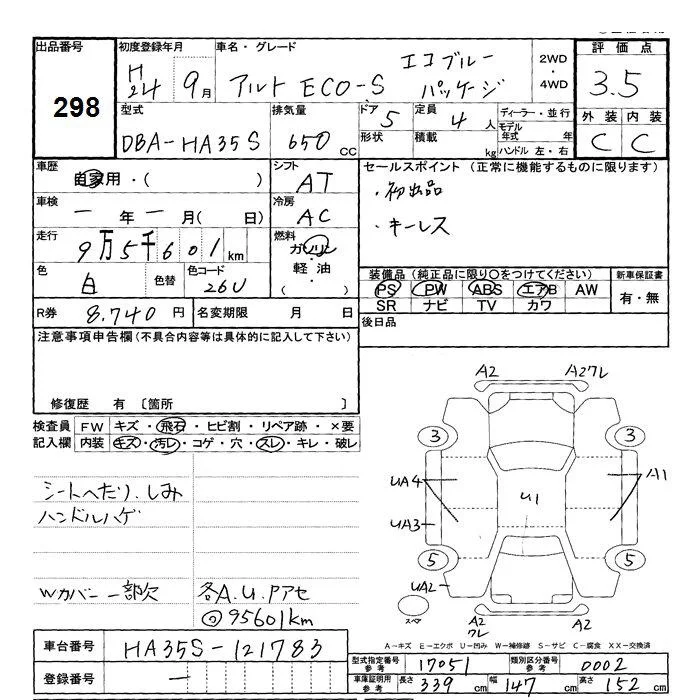 出品番号
298
初度登録年月
H24 9月
車名・グレード
アルト ECO-S エコブルーパッケージ
2WD・4WD
評価点
3.5
外装 内装
C C
型式
DBA-HA35S
排気量
650cc
ドア 5
形状
定員 4人
積載 kg
ディーラー・並行
モデル年式 年
ハンドル 左・右
車歴
自家用・( )
シフト
AT
セールスポイント (正常に機能するものに限ります)
・初出品
・キーレス
車検
ー年ー月( 日)
冷房
AC
走行
9万5千601km
燃料
ガソリン
軽油
( )
色
白
色替
色コード
26U
装備品 (純正品に限り○をつけてください)
PS PW ABS エアB AW
SR ナビ TV カワ
新車保証書
有・無
R券 8,740円
名変期限 月 日
後日品
注意事項申告欄(不具合内容等は具体的に記入して下さい)
修復歴 有 〔箇所 〕
検査員記入欄
FW キズ・飛石・ヒビ割・リペア跡・×要
内装 キズ・汚レ・コゲ・穴・スレ・キレ・破レ
シートへたり.しみ
ハンドルハゲ
Wカバー一部欠
各A.U.Pアセ
◎95601km
A2 A2クレ
3 3
UA4 U1 A1
UA3
5 5
UA2
スペア
A2クレ A2
A-キズ E-エクボ U-凹み W-補修跡 S-サビ C-腐食 XX-交換済
車台番号 HA35S-121783
登録番号 ー
型式指定番号参考 17051
類別区分番号参考 0002
車庫証明用参考 長さ 339cm 幅 147cm 高さ 152cm